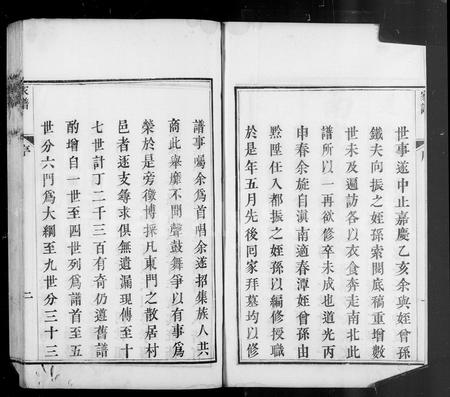 世事遂中止嘉慶乙亥余與姪曾孫
鐵夫向振之姪孫索閱底稿重增數
世未及遍訪各以衣食奔走南北此
譜所以一再欲修卒未成也道光丙
申春余旋自滇南適春潭姪曾孫由
黔陞任入都振之姪孫以編修授職
於是年五月先後囘家拜墓均以修
家譜
序
二
譜事囑余爲首唱余遂招集族人共
商此舉靡不聞聲鼓舞爭以有事爲
榮於是旁徵博採凡東門之散居村
邑者逐支尋求俱無遺漏現傳至十
七世計丁二千三百有奇仍遵舊譜
酌增自一世至四世列爲譜首至五
世分六門爲大綱至九世分三十三